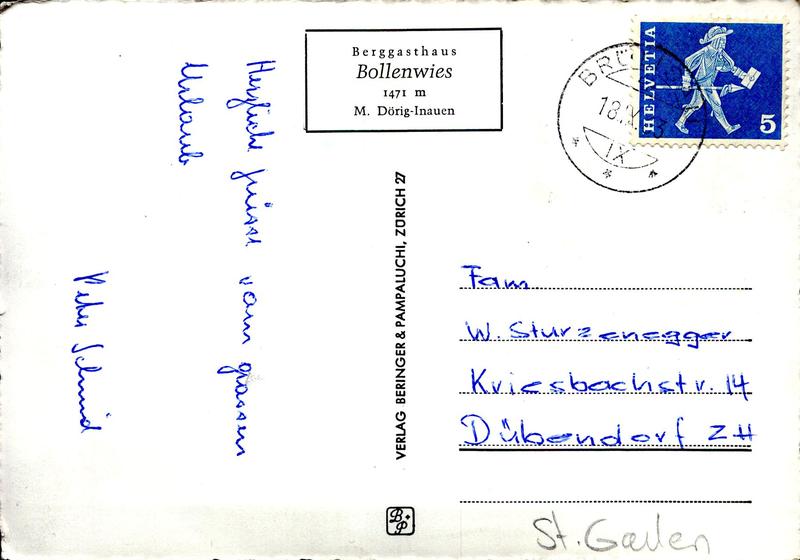 Berggasthaus
Bollenwies
1471 m
M. Dörig-Inauen
HELVETIA
5
18.IX
IX
Herzliche grüsse vom grossen
Urlaub
Peter Schmid
VERLAG BERINGER & PAMPALUCHI, ZÜRICH 27
Fam
W. Sturzenegger
Kriesbachstr. 14
Dübendorf ZH
B P
St. Gallen